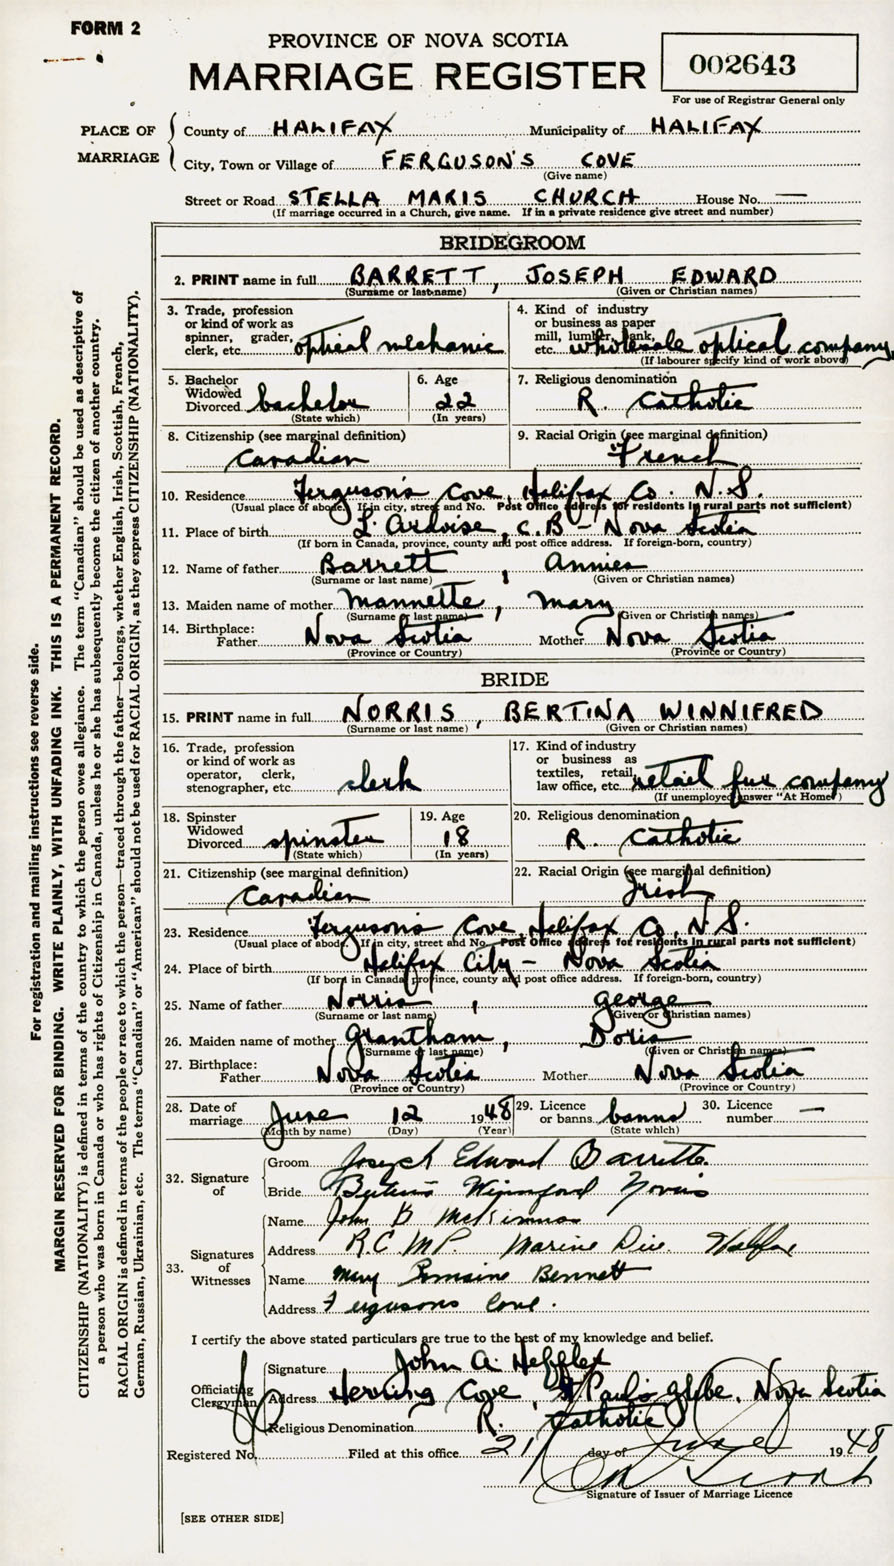 FORM 2
PROVINCE OF NOVA SCOTIA
MARRIAGE REGISTER
002643
For use of Registrar General only
PLACE OF MARRIAGE
County of HALIFAX Municipality of HALIFAX
City, Town or Village of FERGUSON'S COVE
(Give name)
Street or Road STELLA MARIS CHURCH House No. —
(If marriage occurred in a Church, give name. If in a private residence give street and number)
BRIDEGROOM
2. PRINT name in full BARRETT, JOSEPH EDWARD
(Surname or last name) (Given or Christian names)
3. Trade, profession or kind of work as spinner, grader, clerk, etc. optical mechanic
4. Kind of industry or business as paper mill, lumber, bank, etc. wholesale optical company
(If labourer specify kind of work above)
5. Bachelor Widowed Divorced bachelor
(State which)
6. Age 22
(In years)
7. Religious denomination
R. Catholic
8. Citizenship (see marginal definition)
Canadian
9. Racial Origin (see marginal definition)
French
10. Residence Ferguson's Cove, Halifax Co. N.S.
(Usual place of abode. If in city, street and No. Post Office address for residents in rural parts not sufficient)
11. Place of birth L'Ardoise, C.B - Nova Scotia
(If born in Canada, province, county and post office address. If foreign-born, country)
12. Name of father Barrett, Annies
(Surname or last name) (Given or Christian names)
13. Maiden name of mother Mannette, Mary
(Surname or last name) (Given or Christian names)
14. Birthplace: Father Nova Scotia Mother Nova Scotia
(Province or Country) (Province or Country)
BRIDE
15. PRINT name in full NORRIS, BERTINA WINNIFRED
(Surname or last name) (Given or Christian names)
16. Trade, profession or kind of work as operator, clerk, stenographer, etc. clerk
17. Kind of industry or business as textiles, retail, law office, etc. retail fur company
(If unemployed answer "At Home")
18. Spinster Widowed Divorced spinster
(State which)
19. Age 18
(In years)
20. Religious denomination
R. Catholic
21. Citizenship (see marginal definition)
Canadian
22. Racial Origin (see marginal definition)
Irish
23. Residence Ferguson's Cove, Halifax Co, N.S.
(Usual place of abode. If in city, street and No. Post Office address for residents in rural parts not sufficient)
24. Place of birth Halifax City - Nova Scotia
(If born in Canada province, county and post office address. If foreign-born, country)
25. Name of father Norris, George
(Surname or last name) (Given or Christian names)
26. Maiden name of mother Grantham, Doris
(Surname or last name) (Given or Christian names)
27. Birthplace: Father Nova Scotia Mother Nova Scotia
(Province or Country) (Province or Country)
28. Date of marriage June 12 1948
(Month by name) (Day) (Year)
29. Licence or banns banns
(State which)
30. Licence number —
32. Signature of
Groom Joseph Edward Barrette
Bride Bertina Winniford Norris
33. Signatures of Witnesses
Name John B McKinnon
Address R.C.M.P. Marine Div. Halifax
Name Mary Bennett
Address Fergusons Cove.
I certify the above stated particulars are true to the best of my knowledge and belief.
Officiating Clergyman
Signature John A. Heffler
Address Herring Cove, St Paul's Glebe, Nova Scotia
Religious Denomination R. Catholic
Registered No. Filed at this office 21 day of June 1948
Signature of Issuer of Marriage Licence
[SEE OTHER SIDE]
For registration and mailing instructions see reverse side.
MARGIN RESERVED FOR BINDING. WRITE PLAINLY, WITH UNFADING INK. THIS IS A PERMANENT RECORD.
CITIZENSHIP (NATIONALITY) is defined in terms of the country to which the person owes allegiance. The term "Canadian" should be used as descriptive of
a person who was born in Canada or who has rights of Citizenship in Canada, unless he or she has subsequently become the citizen of another country.
RACIAL ORIGIN is defined in terms of the people or race to which the person—traced through the father—belongs, whether English, Irish, Scottish, French,
German, Russian, Ukrainian, etc. The terms "Canadian" or "American" should not be used for RACIAL ORIGIN, as they express CITIZENSHIP (NATIONALITY).